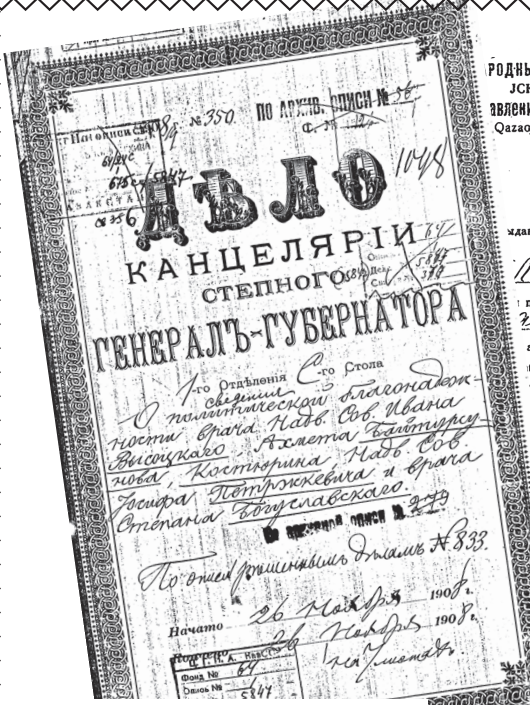 № 350.
ПО АРХИВ. ОПИСИ №
1048
ДѢЛО
КАНЦЕЛЯРІИ
СТЕПНОГО
ГЕНЕРАЛЪ-ГУБЕРНАТОРА
1-го Отдѣленія С-го Стола
сведения
О политической благонадеж-
ности врача Надв. Сов. Ивана
Высоцкаго, Ахмета Байтурсу-
нова, Костюрина, Надв. Сов
Іосифа Петржкевича и врача
Степана Богуславскаго.
описи № 279
По описи рѣшеннымъ дѣламъ № 833.
Начато 26 Ноября 1908 г.
26 Ноября 1908 г.
на листахъ.
Ц. Г. А.
Фонд № 64
Опись №
5847
РОДНЫ
JCK
авлени
Qazaq